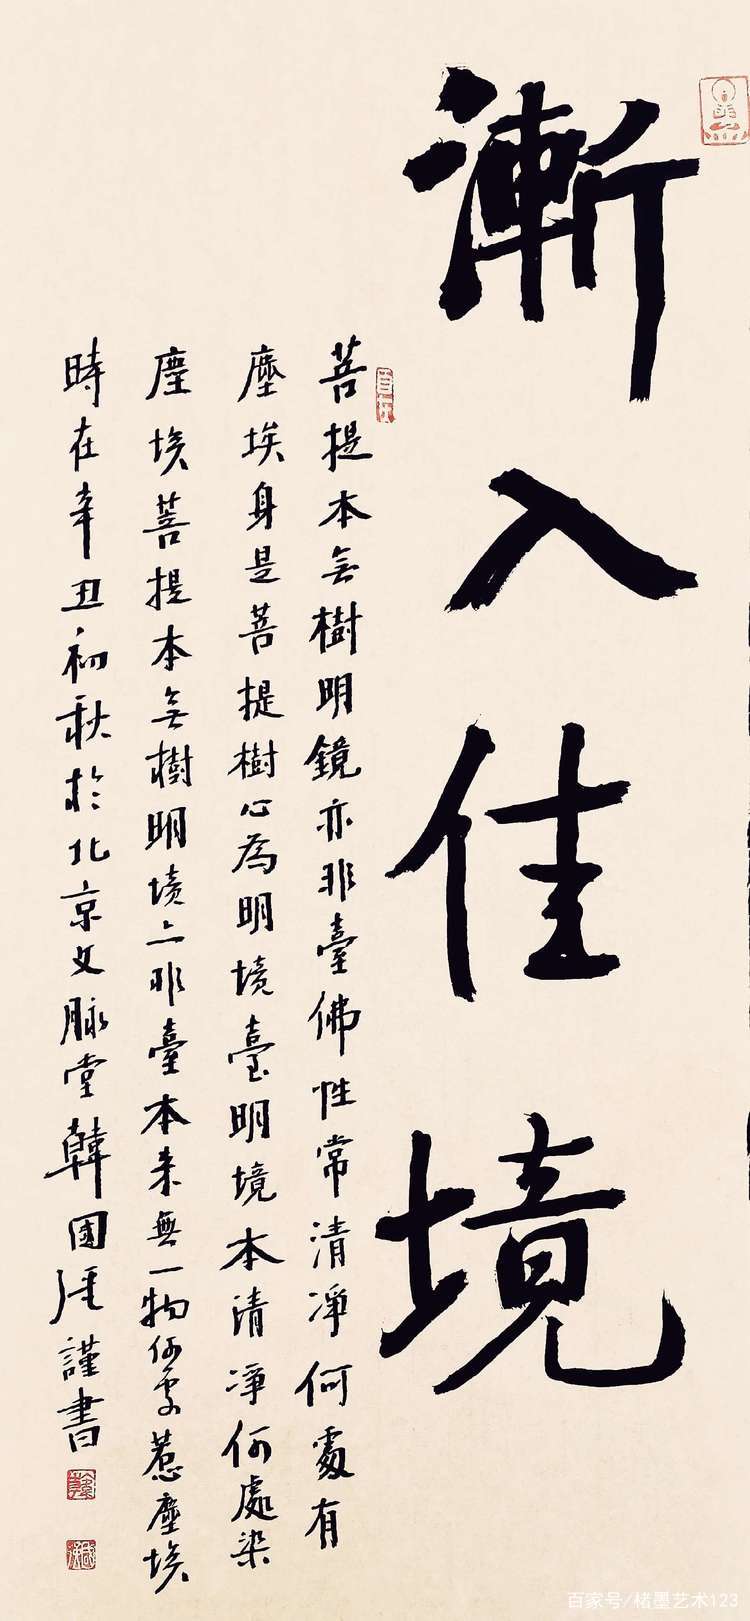 漸入佳境
菩提本無樹明鏡亦非臺佛性常清淨何處有
塵埃身是菩提樹心為明境臺明境本清淨何處染
塵埃菩提本無樹明境亦非臺本来無一物何處惹塵埃
時在辛丑初秋於北京文脉堂韓國强謹書
百家号/楮墨艺术123